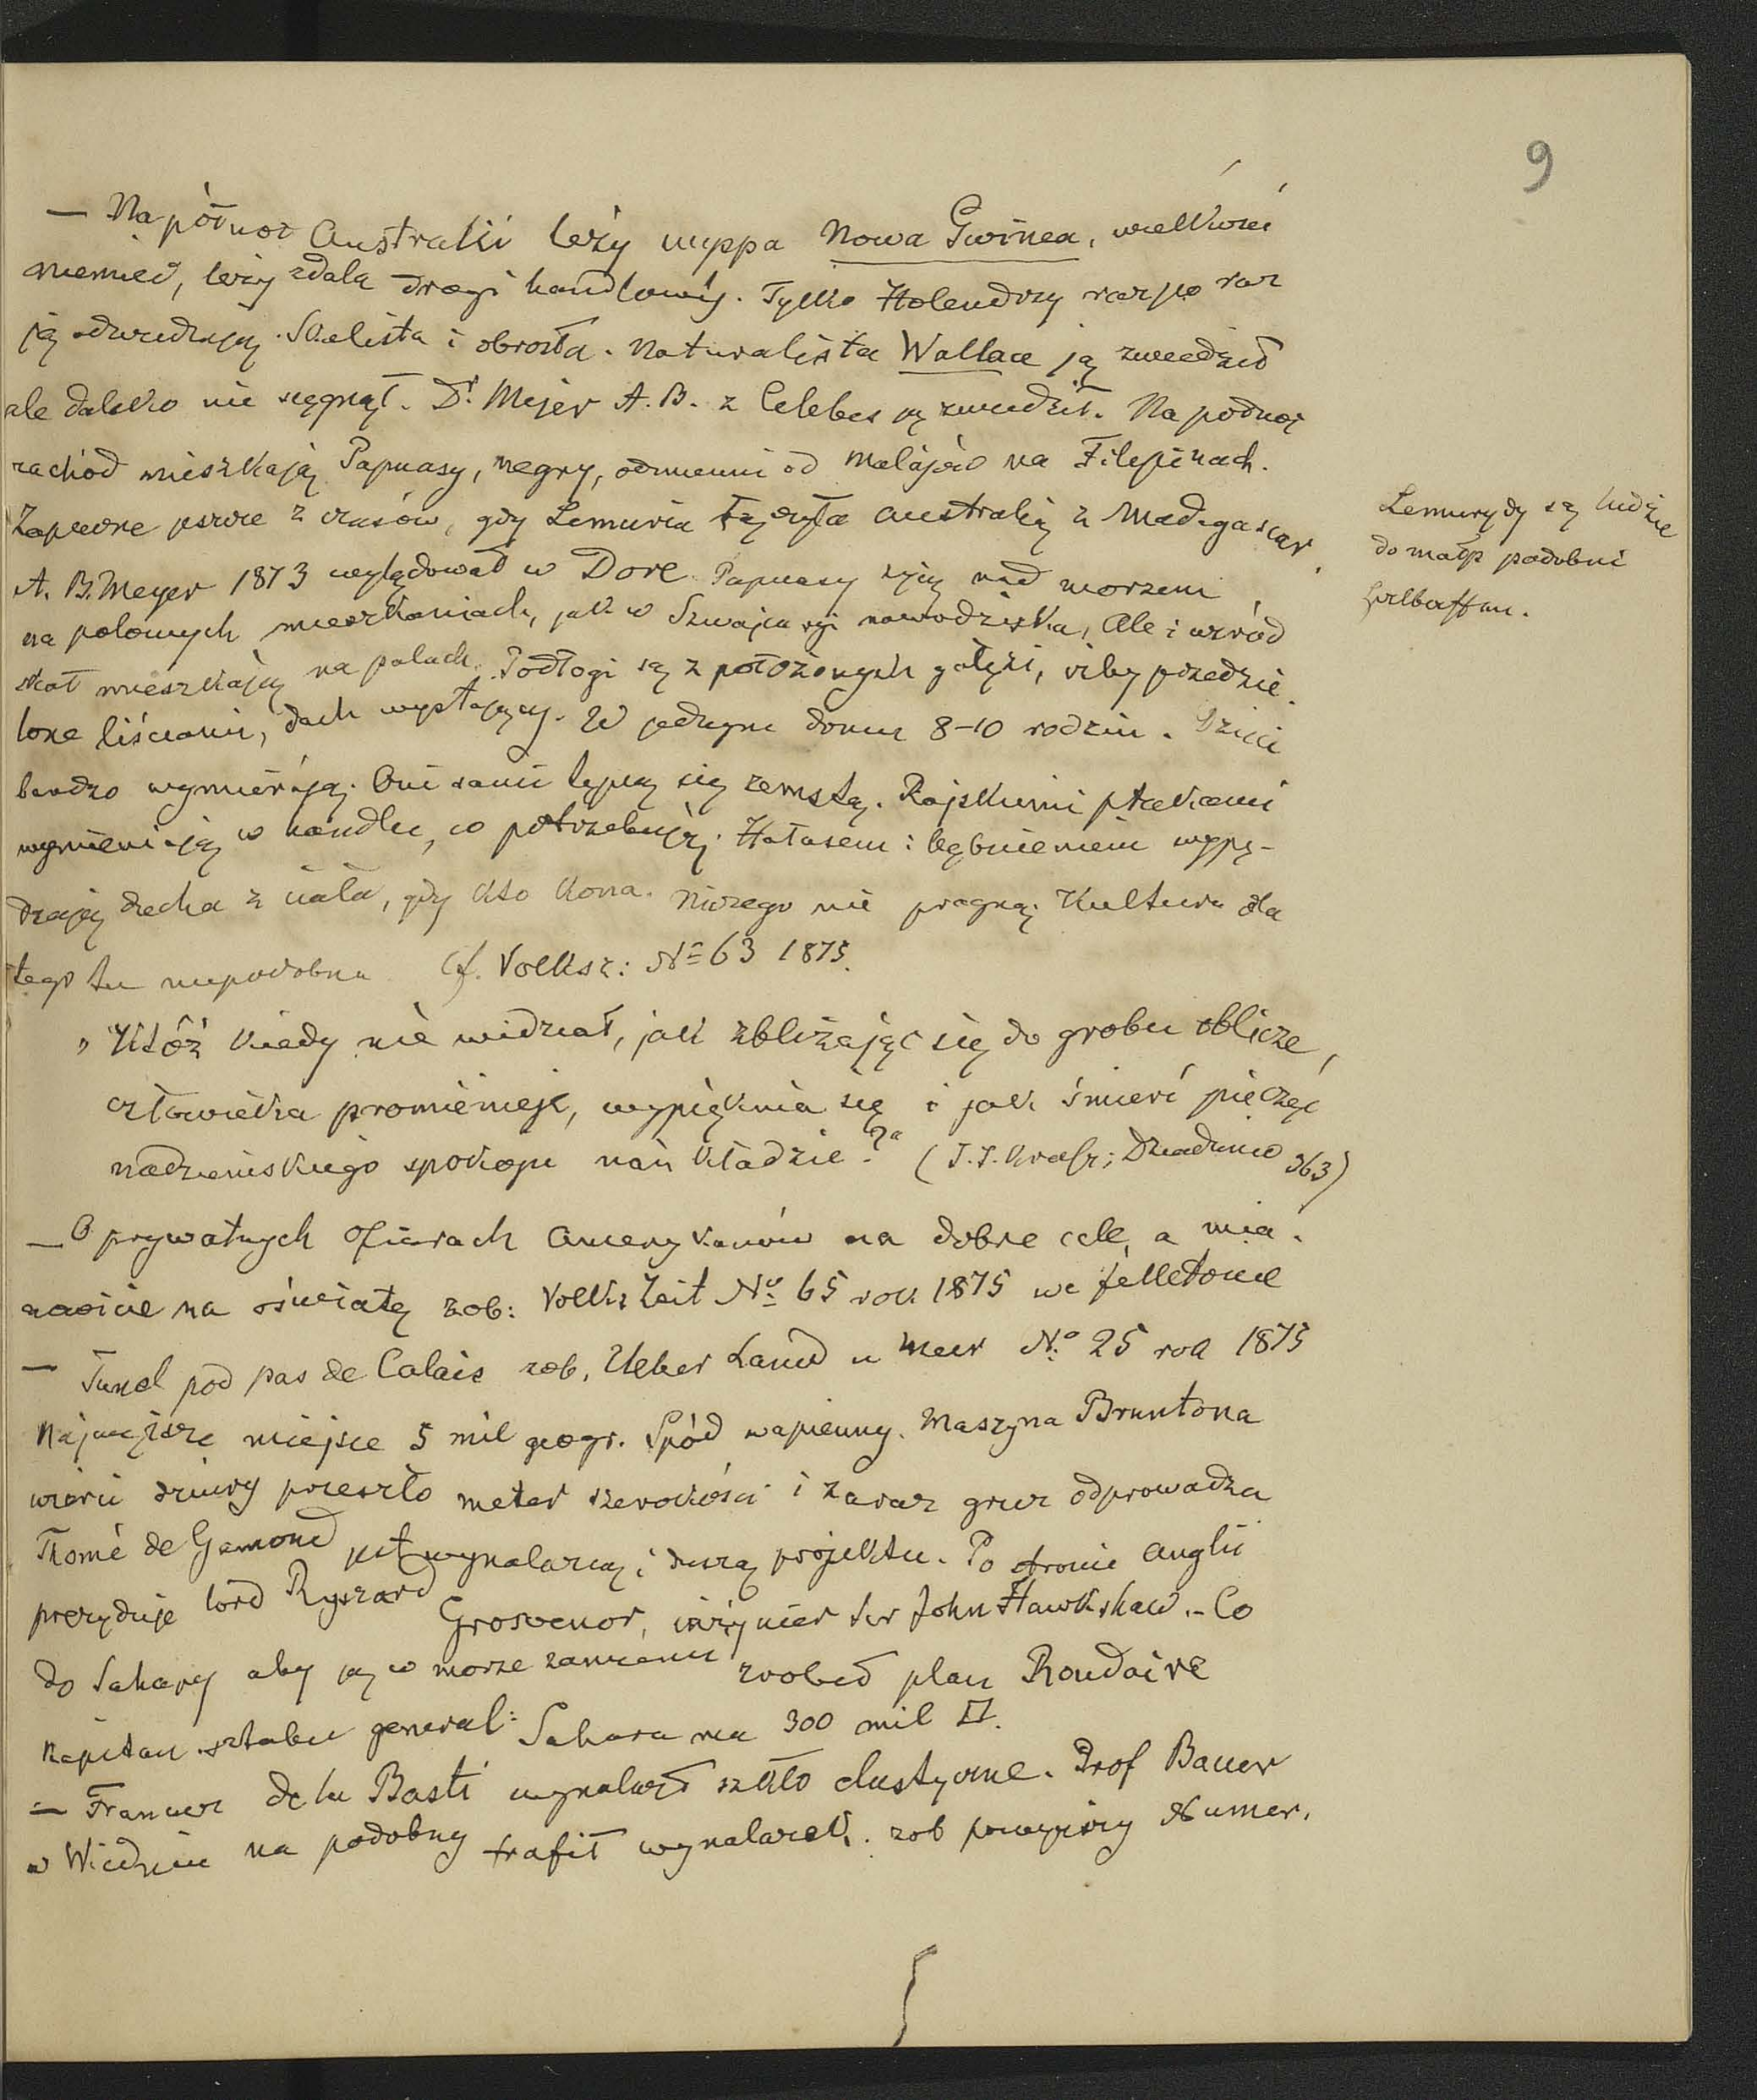 9
— Na północ Australii leży wyspa Nowa Gwinea, wielkości
Niemiec, leży zdala drogi handlowéj. Tylko Holendrzy raz po raz
ją odwiedzają. Skalista i obrosła. Naturalista Wallace ją zwiedził
ale daleko nie sięgnął. Dr. Mejer A. B. z Celebes ją zwiedził. Na północ
zachód mieszkają Papuasy, negry, odmienni od Malajów na Filipinach.
Zapewne jeszcze z czasów, gdy Lemuria łączyła Australią z Madagascar.
A. B. Meyer 1873 wylądował w Dore. Papuasy żyją nad morzem
na polowych mieszkaniach, jak w Szwajcaryi nawodziska, ale i wśród
skał mieszkają na palach. Podłogi są z położonych gałęzi, izby przedzie
lone liściami, dach wystający. W jednym domu 8–10 rodzin. Dzieci
bardzo wymierają. Oni sami tępią się zemstą. Rajskiemi ptakami
wymieniają w handlu, co potrzebują. Hałasem i bębnieniem wypę-
dzają ducha z ciała, gdy kto kona. Niczego nie pragną. Kultura dla
tego tu niepodobna Cf. Volksz: No 63 1875.
„Któż kiedy nie widział, jak zbliżając się do grobu oblicze,
człowieka promienieje, wypięknia się i jak śmierć pieczęć
nadziemskiego spokoju nań kładzie?" (J. I. Krasz; Dziadunio 363)
— O prywatnych ofiarach Amerykanów na dobre cele, a mia-
nowicie na oświatę zob: Volks Zeit No 65 rok 1875 we felletonie
— Tunel pod pas de Calais zob. Ueber Land u Meer No 25 rok 1875
Najwęższe miejsce 5 mil geogr. Spód wapienny. Maszyna Bruntona
wierci dziury przeszło meter szerokości i zaraz gruz odprowadza
Thomé de Gamond jest wynalazcą i duszą projektu. Po stronie Anglii
prezyduje lord Ryszard Grosvenor, inżynier ser John Hawkshaw. – Co
do Sahary aby ją w morze zamienić zrobił plan Roudaire
Kapitan sztabu general: Sahara ma 300 mil □.
— Francuz de la Basti wynalazł szkło elastyczne. Prof Bauer
w Wiedniu na podobny trafił wynalazek. zob powyższy Numer.
Lemurydy są ludzie
do małp podobni
Halbaffen.